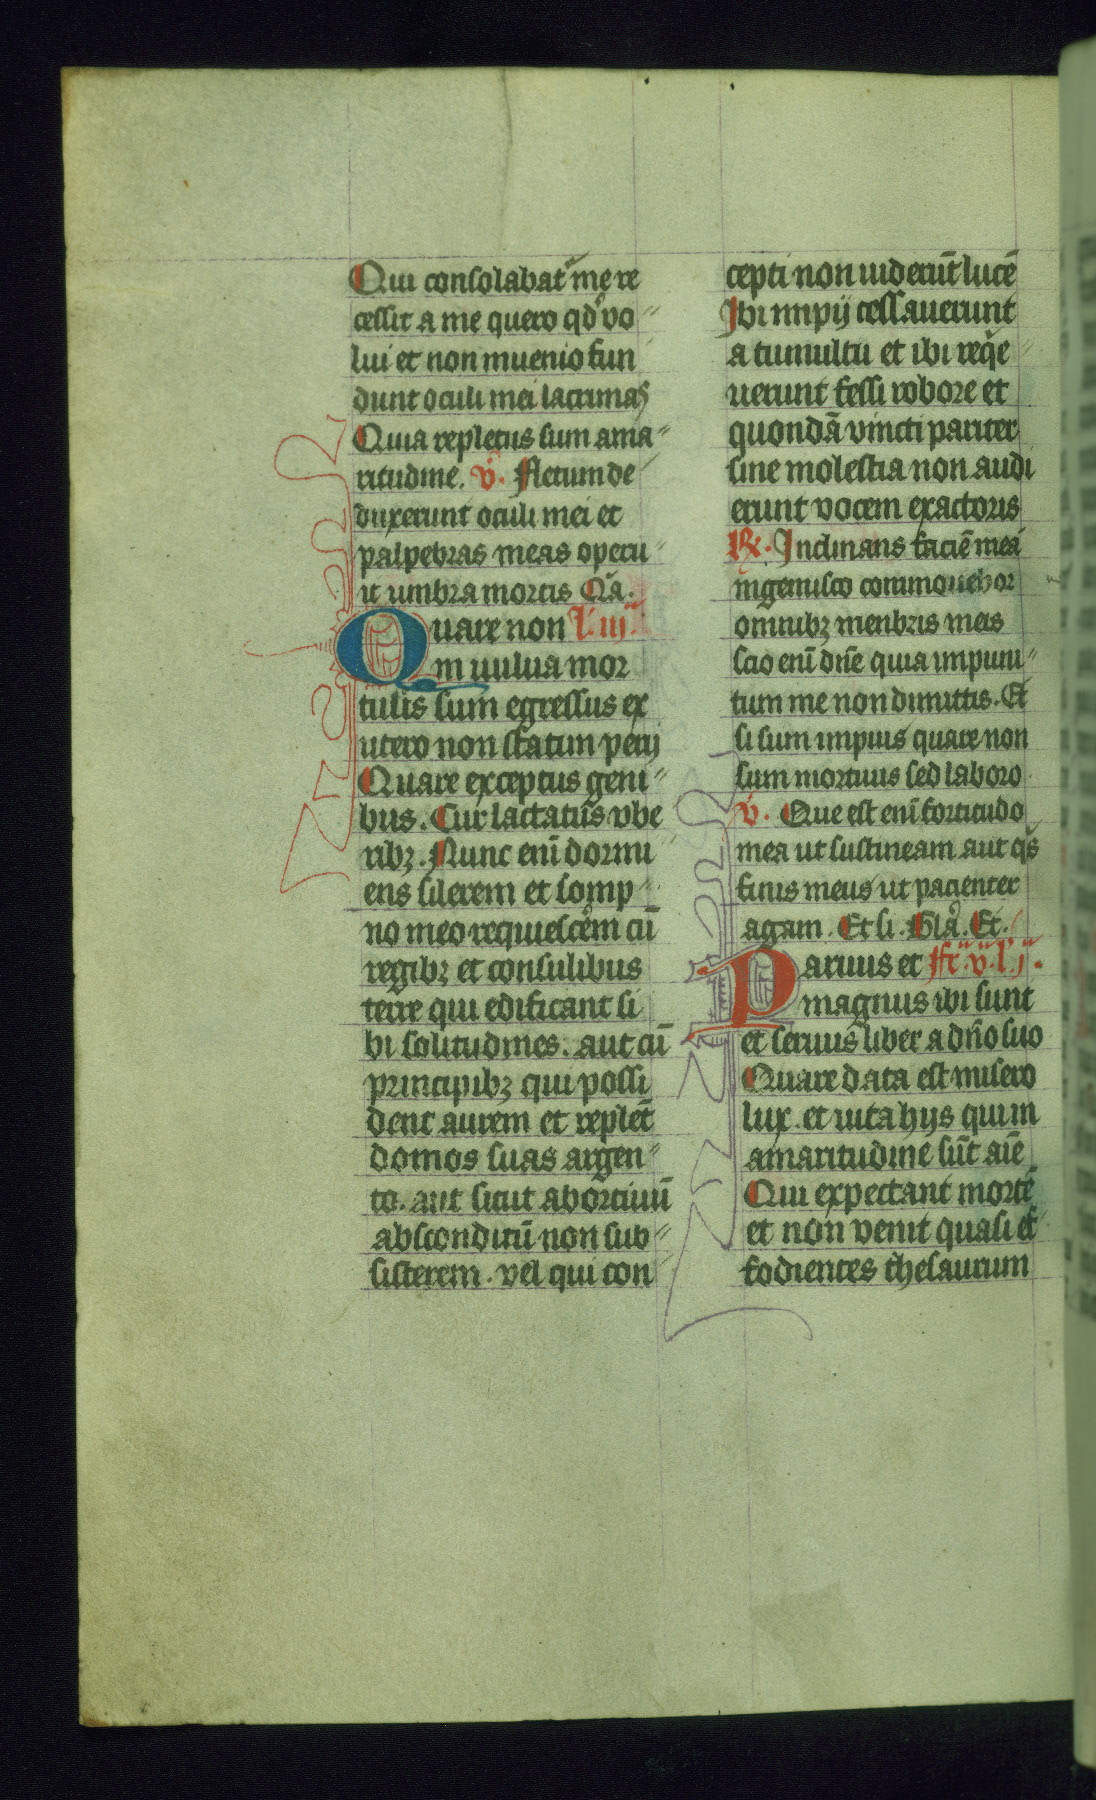 Qui consolabat᷑ me re
cessit a me quero qd̾ vo
lui et non inuenio fun
dunt oculi mei lacrimas
Quia repletus sum ama
ritudine. v̾. Fletum de
duxerunt oculi mei et
palpebras meas operu
it umbra mortis Qͣa.
Quare non l̾. iij.
in uulua mor
tuus sum egressus ex
utero non statim perij
Quare exceptus geni
bus. Cur lactatus vbe
ribꝫ. Nunc enī dormi
ens silerem et somp
no meo requiescerem cū
regibꝫ et consulibus
terre qui edificant si
bi solitudines. aut cū
principibꝫ qui possi
dent aurum et replēt
domos suas argen
to. aut sicut abortiuū
absconditū non sub
sisterem. vel qui con
cepti non uiderūt lucē
Ibi impij cessauerunt
a tumultu et ibi reqͥe
uerunt fessi robore et
quondā vincti pariter
sine molestia non audi
erunt vocem exactoris
R̾. Inclinans faciē meā
ingemisco commouebor
omnibꝫ menbris meis
scio enī dn̄e quia impuni
tum me non dimittis. Et
si sum impius quare non
sum mortuus sed laboro
v̾. Que est enī fortitudo
mea ut sustineam aut qͥs
finis meus ut pacienter
agam. Et si. Glͣa. Et.
Paruus et fr̄. v. l̾. j.
magnus ibi sunt
et seruus liber a dn̄o suo
Quare data est misero
lux. et uita hijs qui in
amaritudine sūt aīe
Qui expectant mortē
et non venit quasi ef
fodientes thesaurum